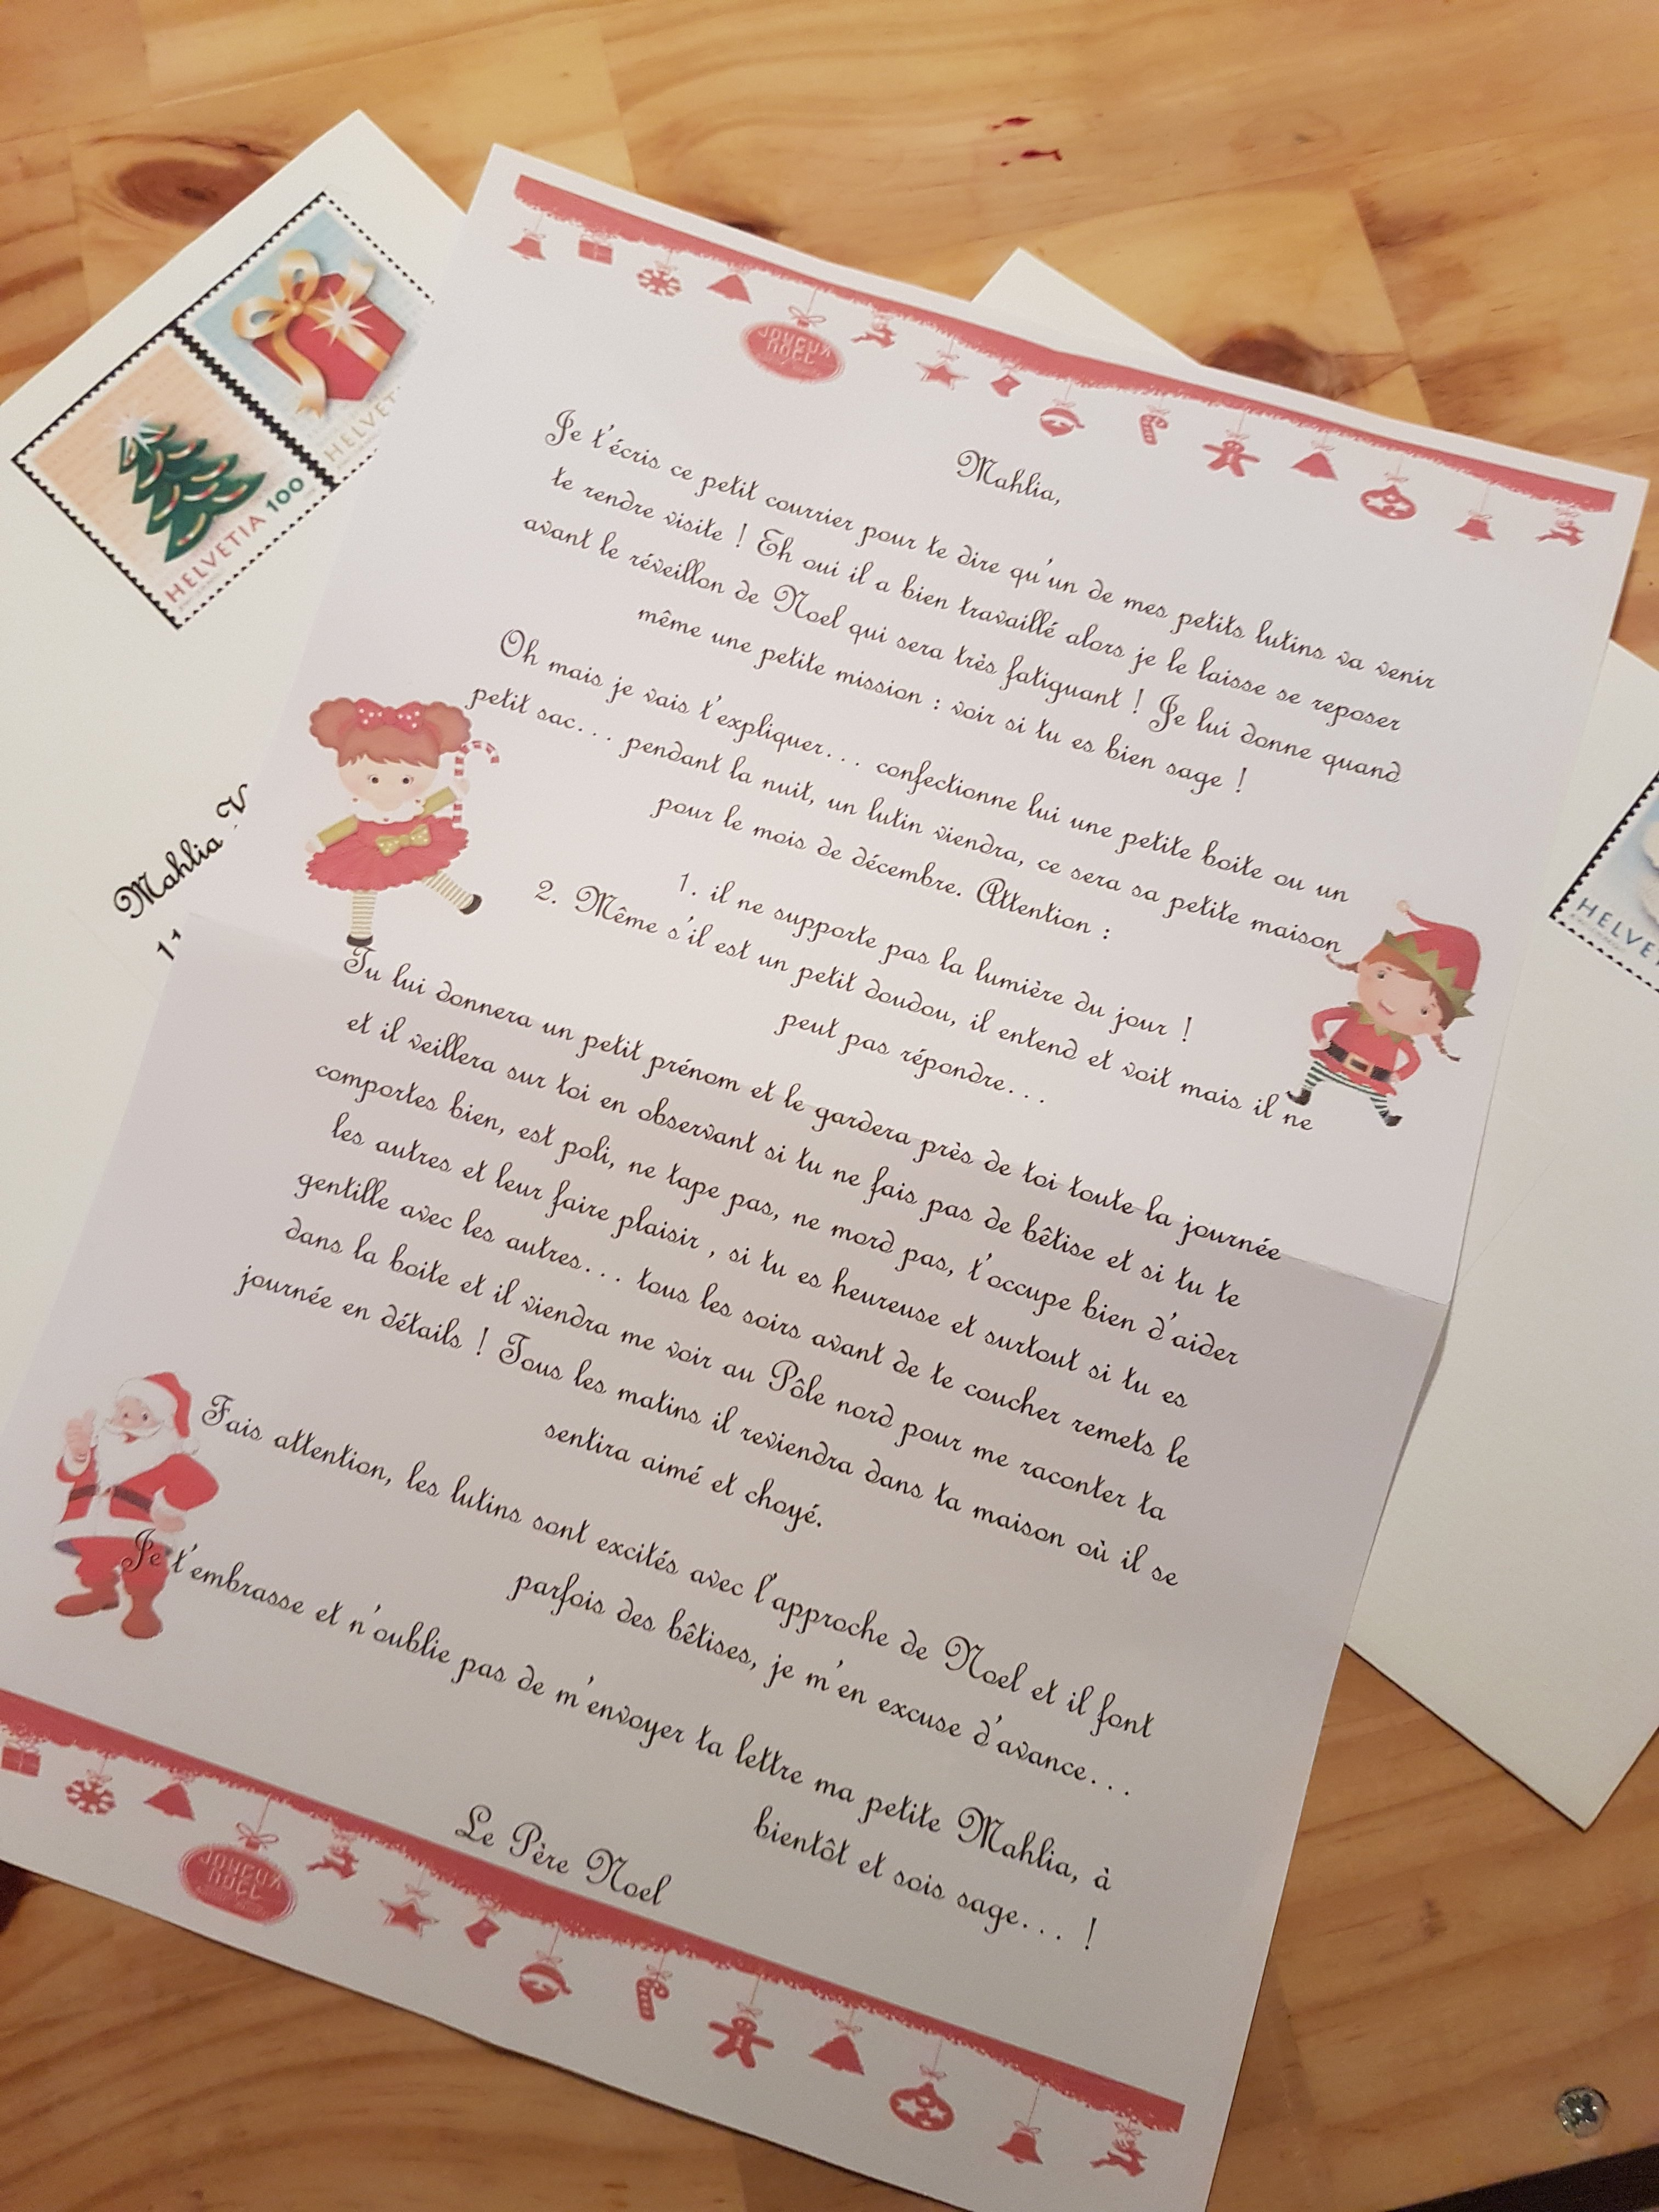 JOYEUX
NOEL
Mahlia,
Je t'écris ce petit courrier pour te dire qu'un de mes petits lutins va venir
te rendre visite ! Eh oui il a bien travaillé alors je le laisse se reposer
avant le réveillon de Noel qui sera très fatiguant ! Je lui donne quand
même une petite mission : voir si tu es bien sage !
Oh mais je vais t'expliquer... confectionne lui une petite boite ou un
petit sac... pendant la nuit, un lutin viendra, ce sera sa petite maison
pour le mois de décembre. Attention :
1. il ne supporte pas la lumière du jour !
2. Même s'il est un petit doudou, il entend et voit mais il ne
peut pas répondre...
Tu lui donnera un petit prénom et le gardera près de toi toute la journée
et il veillera sur toi en observant si tu ne fais pas de bêtise et si tu te
comportes bien, est poli, ne tape pas, ne mord pas, t'occupe bien d'aider
les autres et leur faire plaisir , si tu es heureuse et surtout si tu es
gentille avec les autres... tous les soirs avant de te coucher remets le
dans la boite et il viendra me voir au Pôle nord pour me raconter ta
journée en détails ! Tous les matins il reviendra dans ta maison où il se
sentira aimé et choyé.
Fais attention, les lutins sont excités avec l'approche de Noel et il font
parfois des bêtises, je m'en excuse d'avance...
Je t'embrasse et n'oublie pas de m'envoyer ta lettre ma petite Mahlia, à
bientôt et sois sage... !
Le Père Noel
JOYEUX
NOEL
HELVETIA 100
HELVET
Mahlia V
HELVE